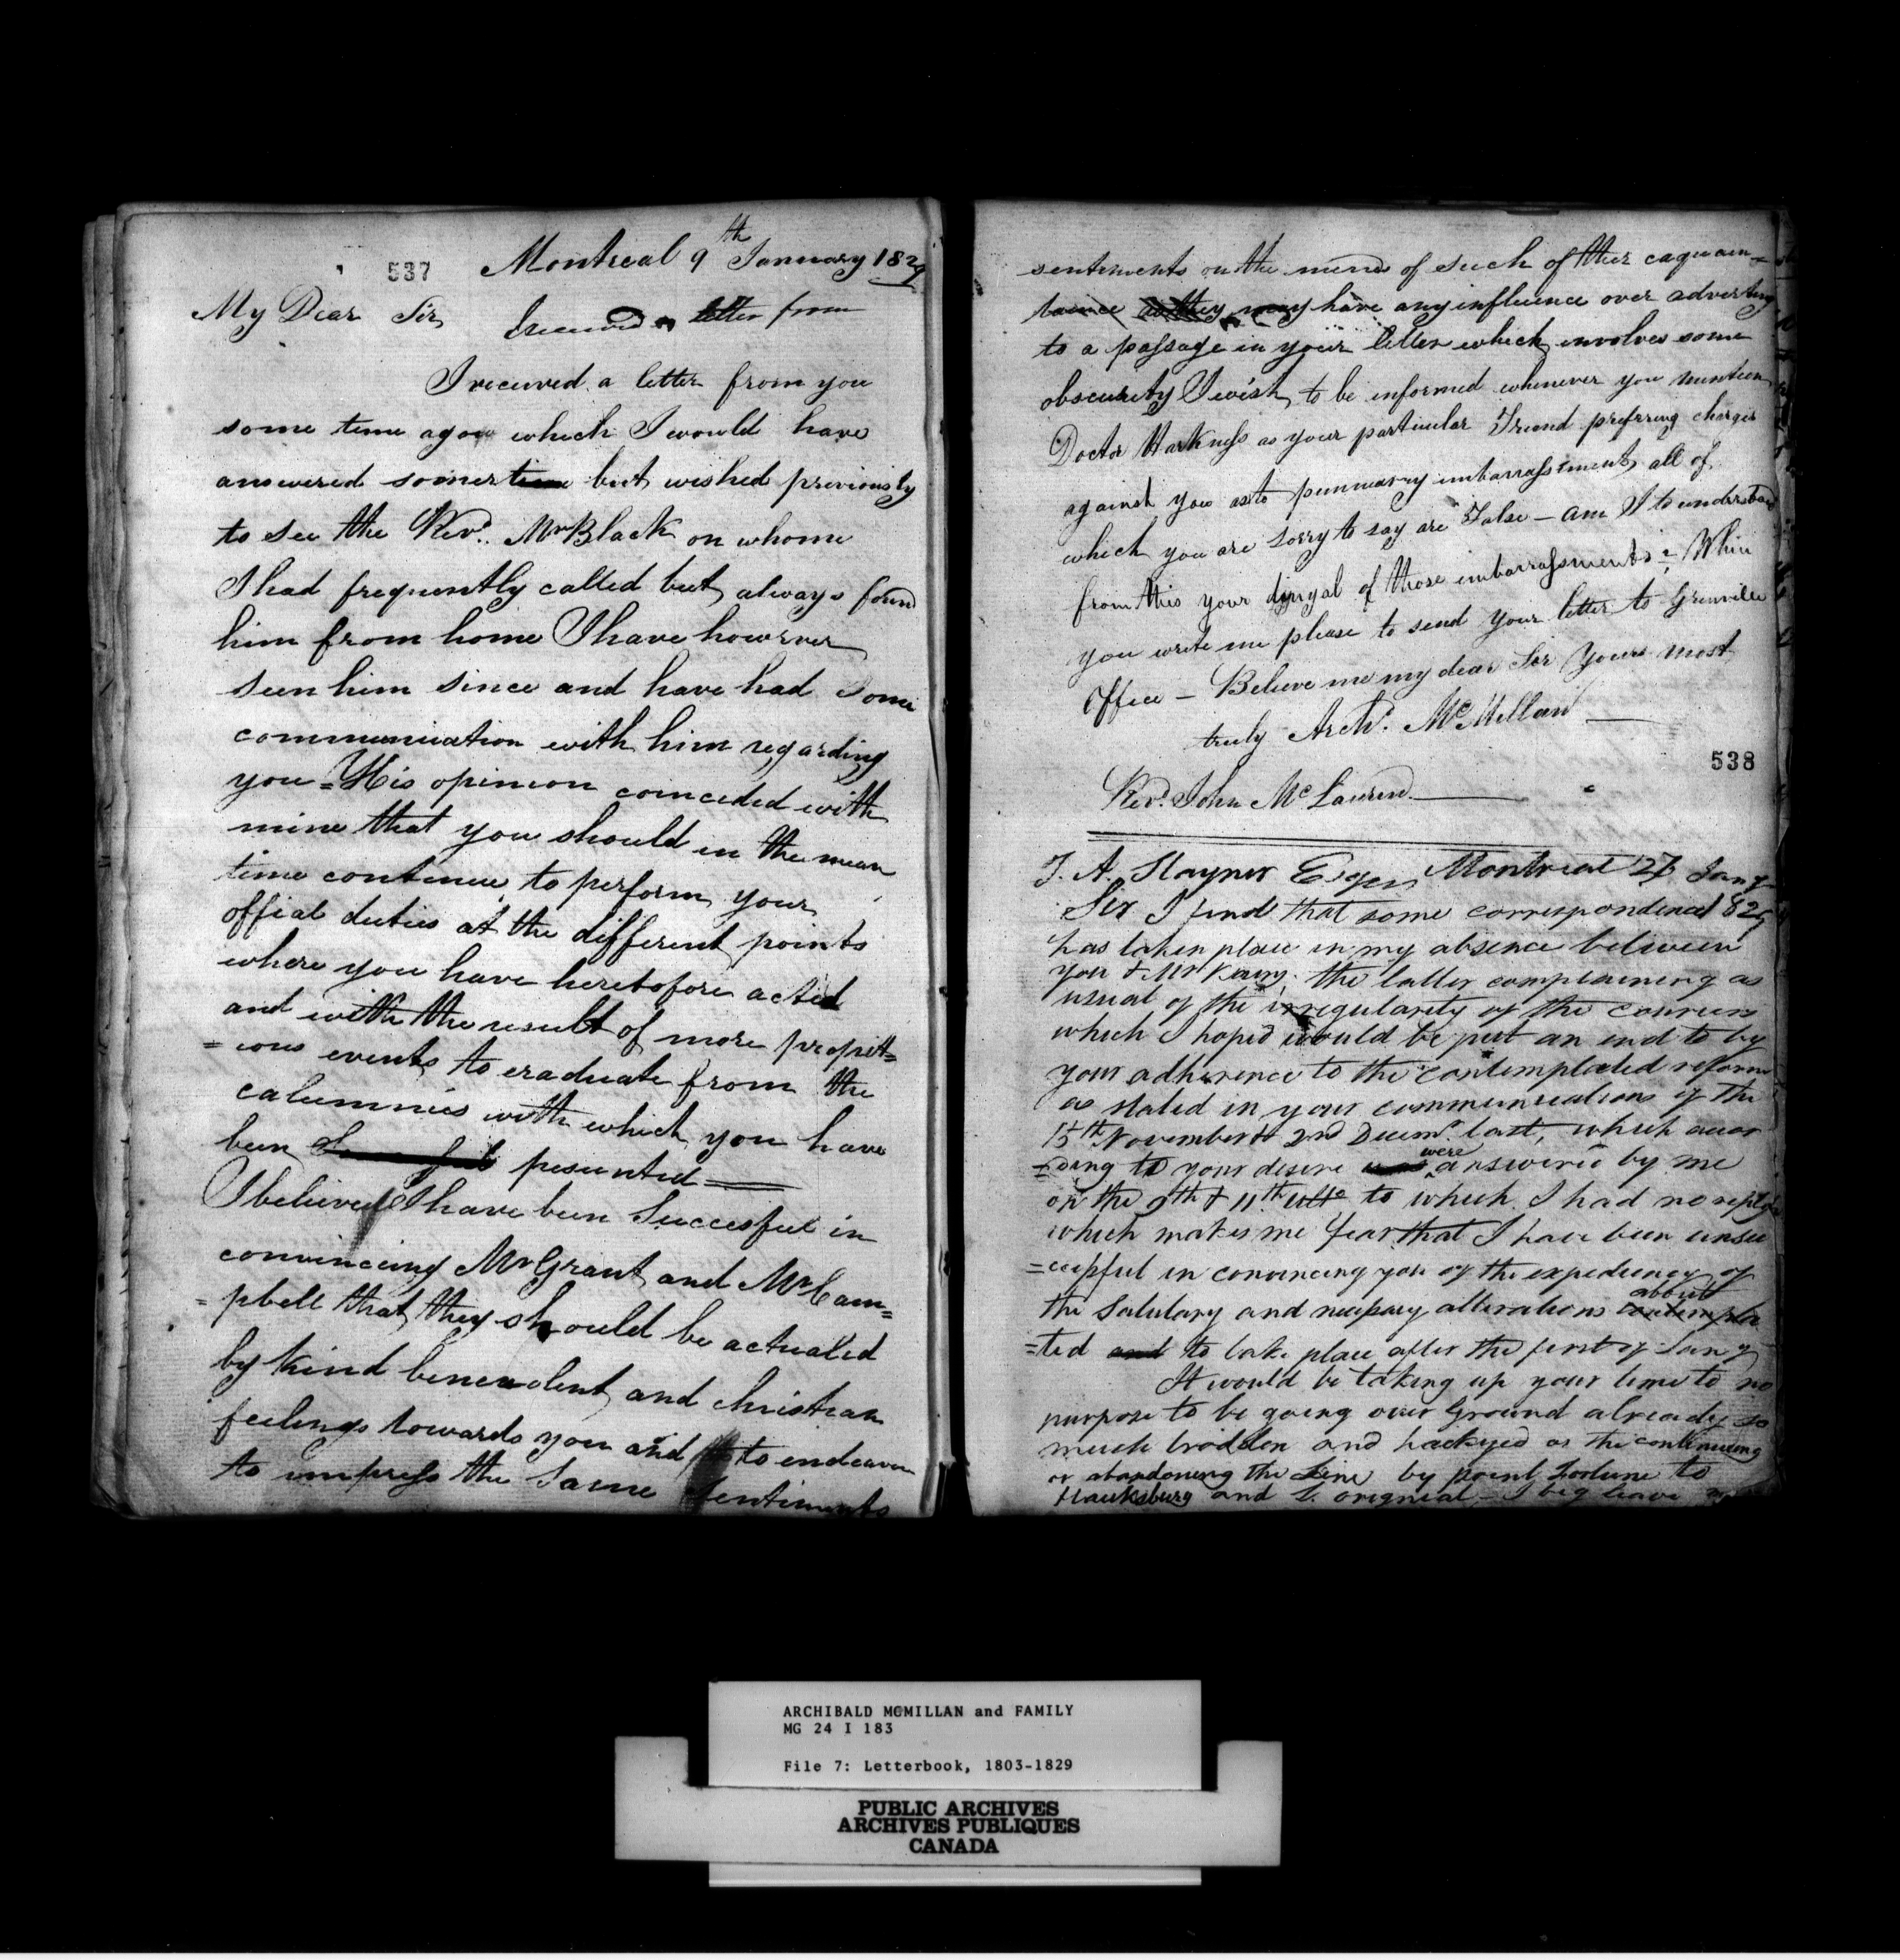 537 Montreal 9th January 1829
My Dear Sir, I received a letter from
I received a letter from you
some time agow which I would have
answered somer time but wished previously
to see the Revd. Mr Black on whome
I had frequently called but always found
him from home I have however
seen him since and have had some
communication with him regarding
you = His opinion coinceded with
mine that you should in the mean
time continue to perform your
offial duties at the different points
where you have heretofore acted
and with the result of more propit=
=ious events to eraducate from the
calumnies with which you have
been pesented ——
I believed I have been Succesful in
convinceing Mr Grant and Mr Cam=
=pbell that they should be actuated
by kind benevolent and christian
feelings towards you and to endeavour
to impress the same sentiments
sentiments on the minds of such of ther caquain=
tance as they may have any influence over adverting
to a passage in your letter which involves some
obscurity I wish to be informed whenever you mention
Doctor Harkness as your particular Friend prefering charges
against you as to pecunuary imbarrassments all of
which you are sorry to say are False — am I to understand
from this your dinyal of those imbarrassments = When
you write me please to send your letter to Grenville
Office — Believe me my dear Sir Yours most
truly Archd. McMillan ——
538
Revd. John McLauren ——
T. A. Stayner Esqr Montreal 27 Jany
Sir I find that some correspondence 829
has taken place in my absence between
you & Mr Kains. the latter complaining as
usual of the irregularity of the couriers
which I hoped would be put an end to by
your adherence to the contemplated reform
as stated in your communications of the
15th November & 2nd Decemr. last, which accor
=ding to your desire were answered by me
on the 9th & 11th ulto to which I had no reply
which makes me fear that I have been unsuc
=cessful in convincing you of the expediency of
the Salutary and necessary alterations about contempla
=ted and to take place after the first of Jany
It would be taking up your time to no
purpose to be going over Ground already so
much trodden and hackyed as the continueing
or abandoneing the Line by point Fortune to
Hawksburg and L. orignial — I beg leave
ARCHIBALD MCMILLAN and FAMILY
MG 24 I 183
File 7: Letterbook, 1803-1829
PUBLIC ARCHIVES
ARCHIVES PUBLIQUES
CANADA